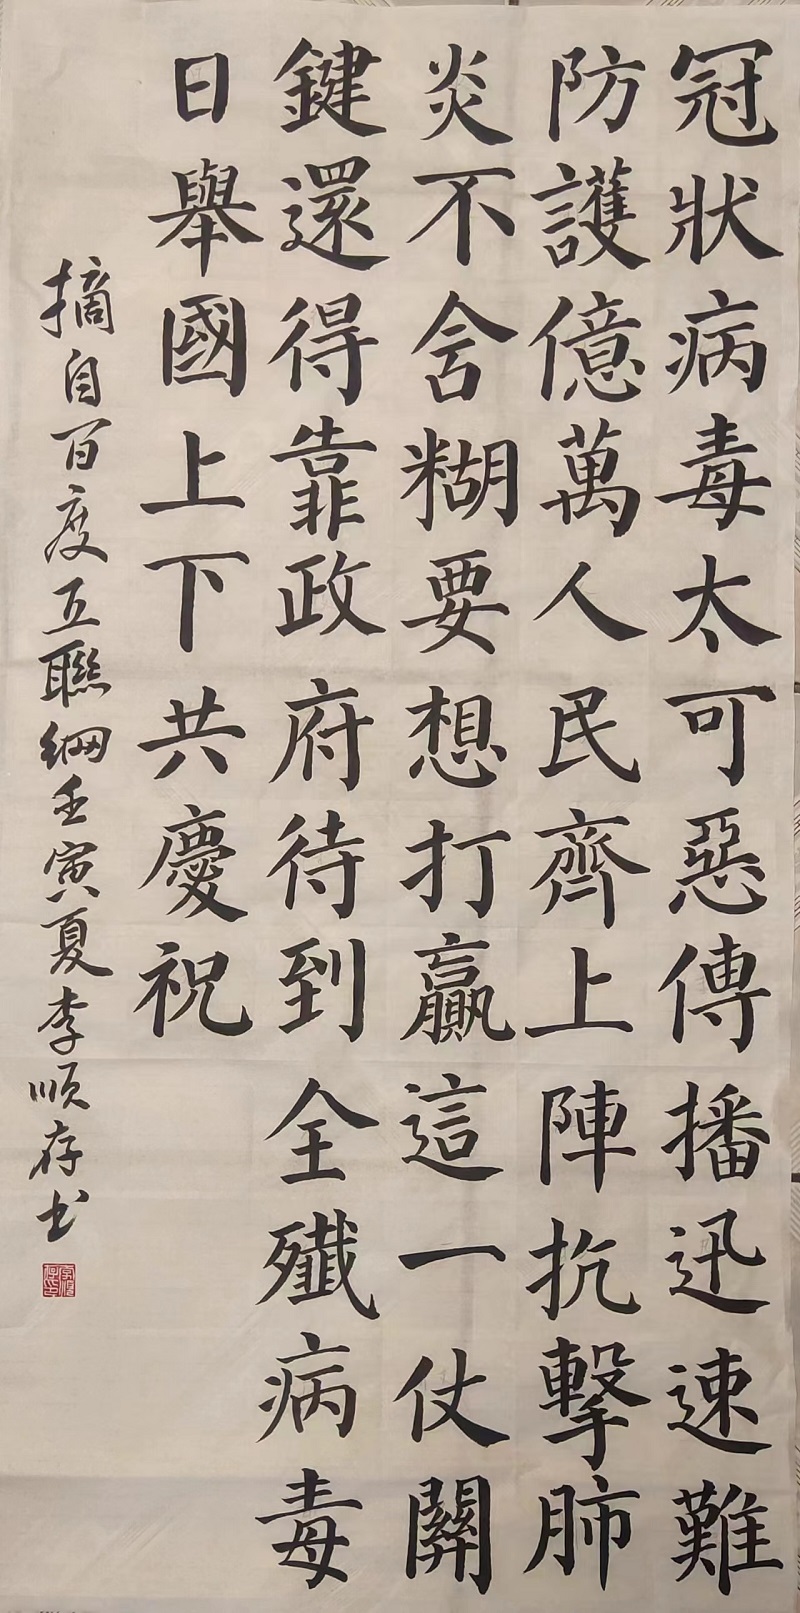 冠狀病毒太可惡傳播迅速難
防護億萬人民齊上陣抗擊肺
炎不含糊要想打贏這一仗關
鍵還得靠政府待到全殲病毒
日舉國上下共慶祝
摘自百度互聯網壬寅夏李順存书